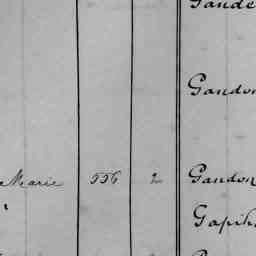 Gande
Gandon
Marie 556 2 Gandon
Gapih